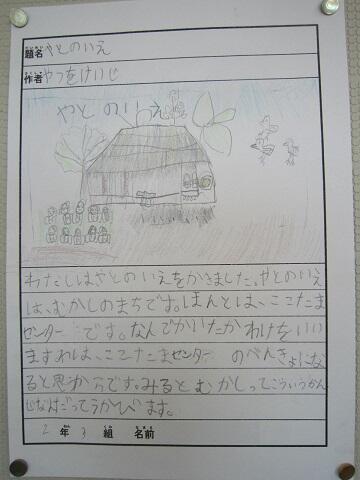 題名 やとのいえ
作者 やつをけいじ
やとのいえ
わたしはやとのいえをかきました。やとのいえ
は、むかしのまちです。ほんとは、ここたま
センターです。なんでかいたかわけをいい
ますわは、ここたまセンター のべんきょにな
ると思からです。みるとむかしってこういうかん
じなんだってうかびます。
2 年 3 組 名前